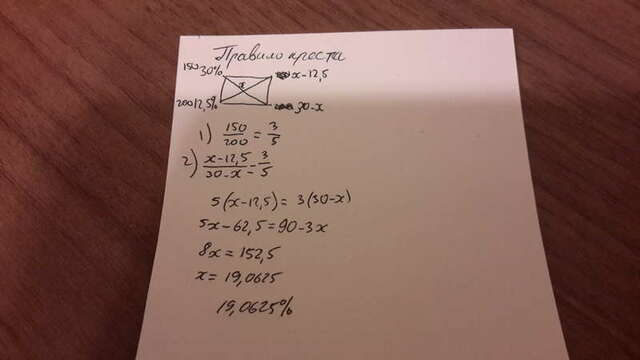 Правило креста
150 30% x x-12,5
200 12,5% 30-x
1) 150/200 = 3/5
2) x-12,5/30-x = 3/5
5(x-12,5) = 3(30-x)
5x-62,5=90-3x
8x = 152,5
x = 19,0625
19,0625%